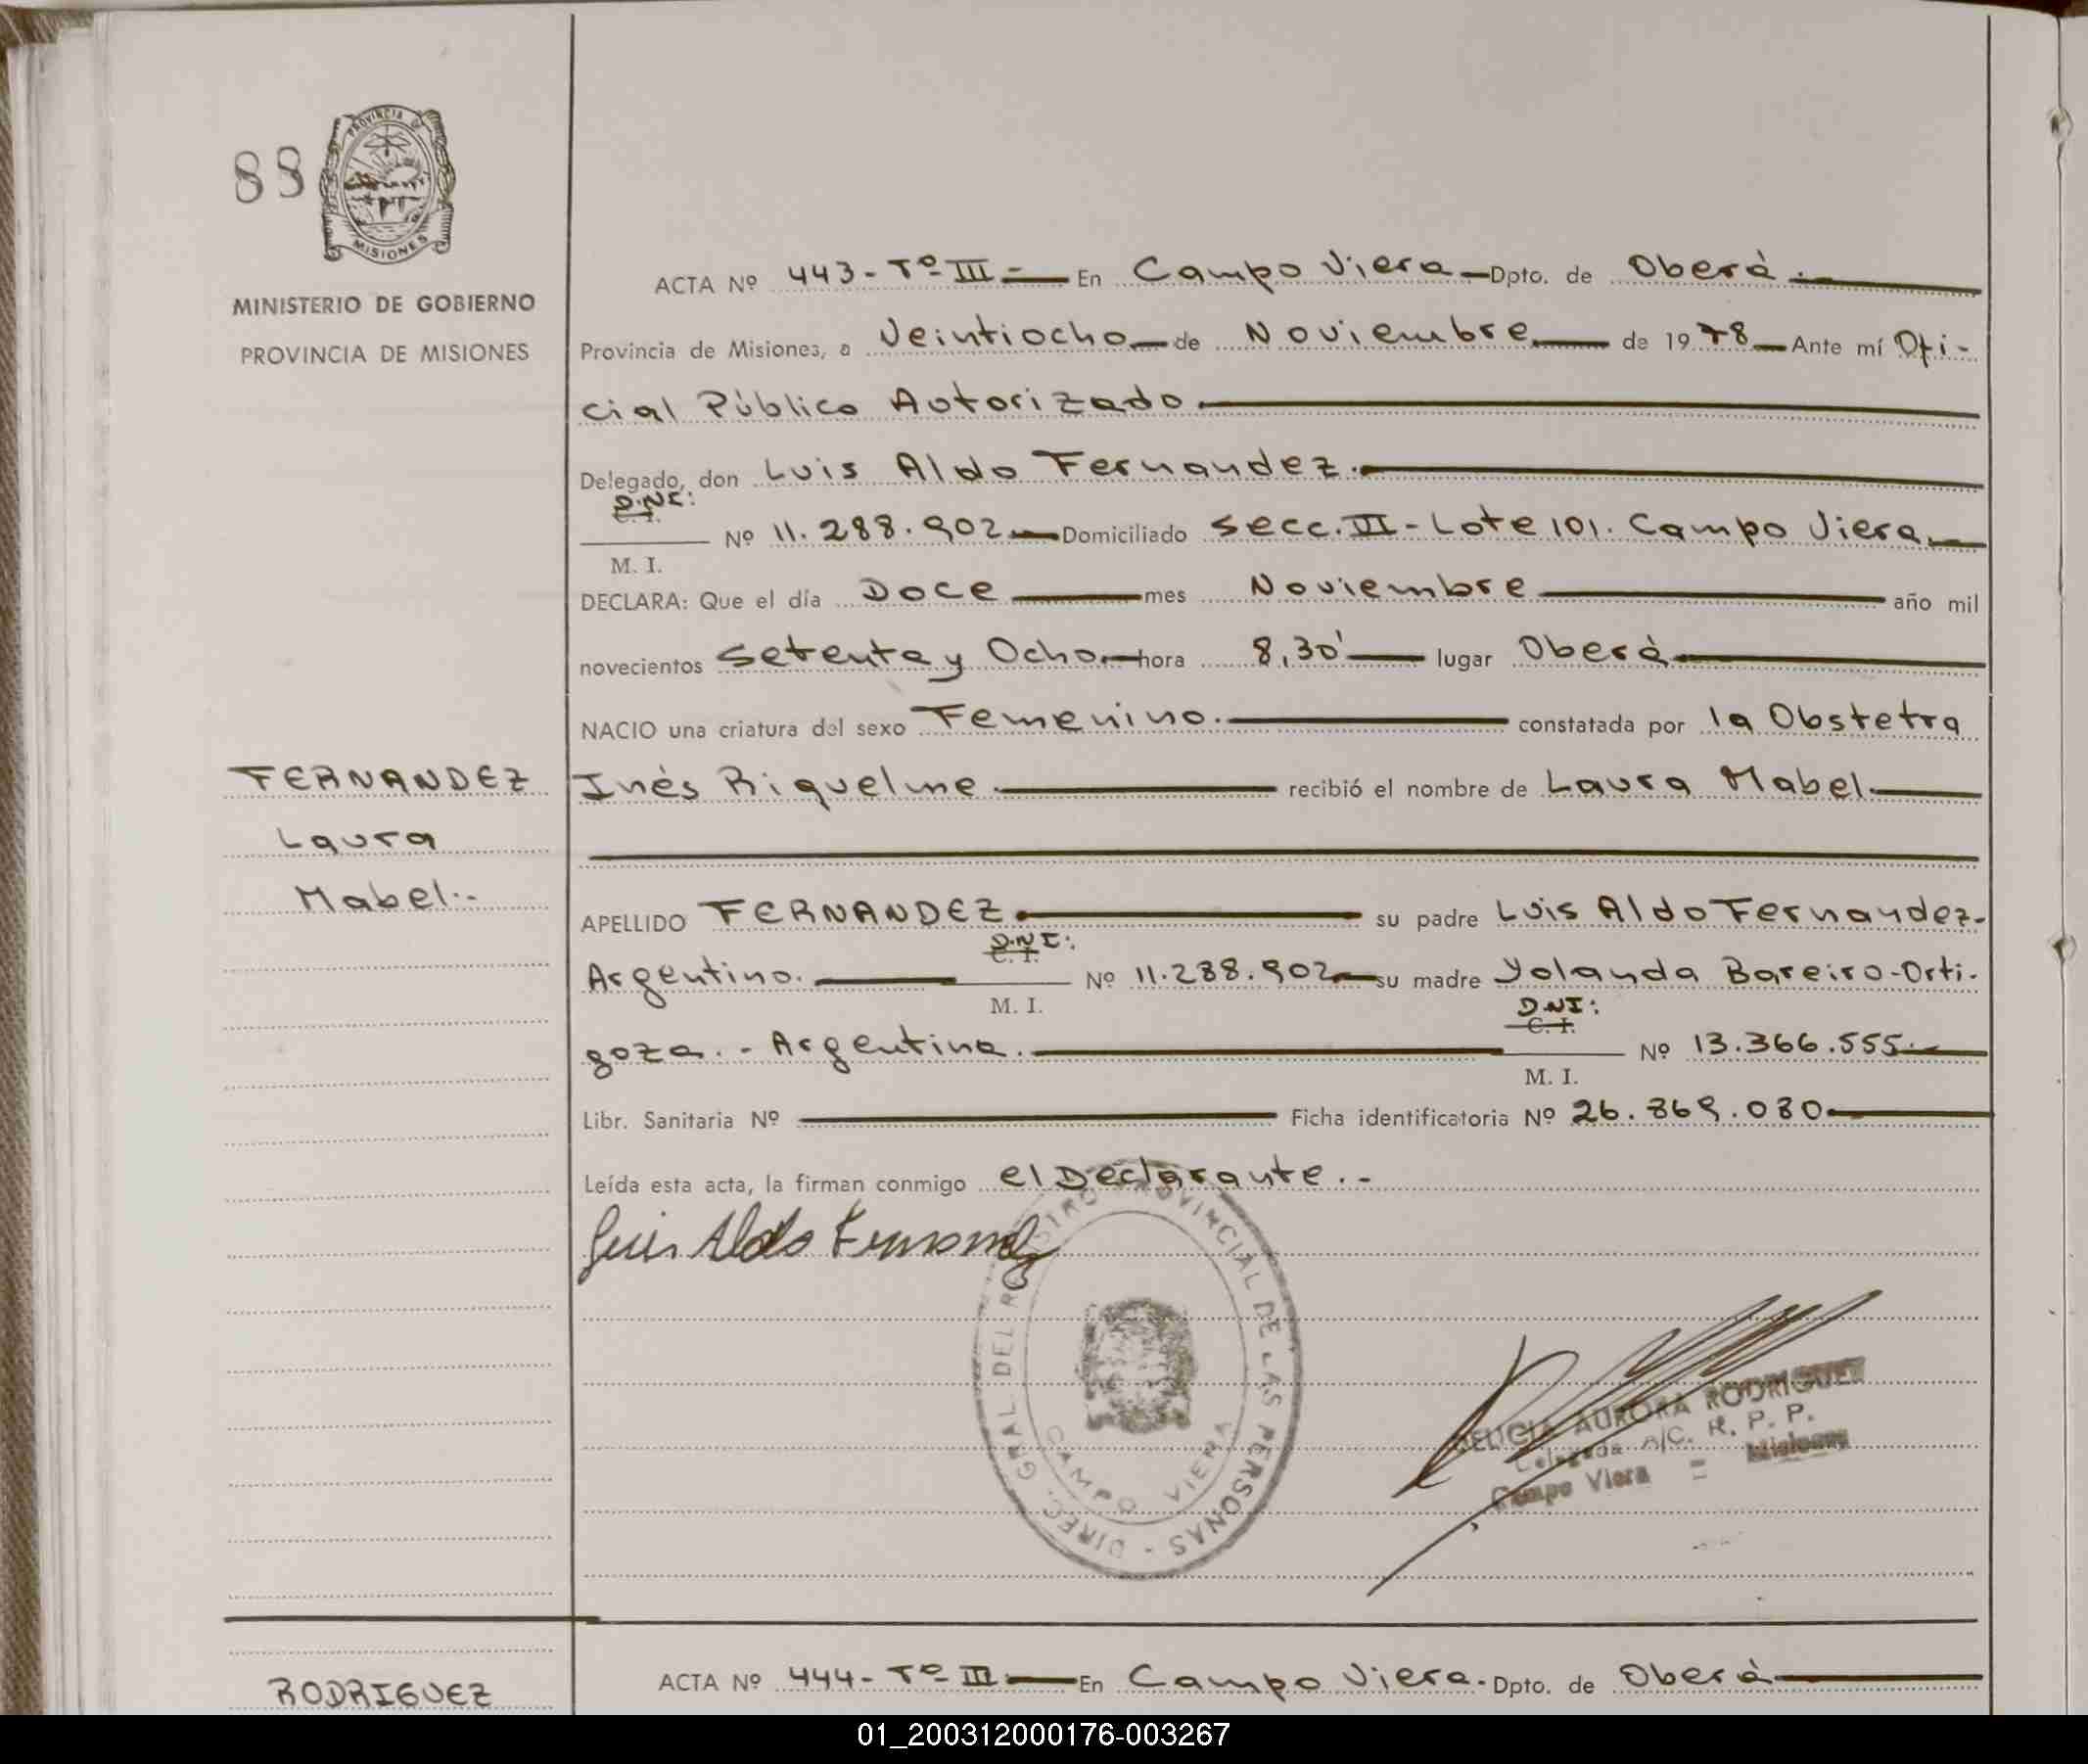 88
PROVINCIA D
MISIONES
MINISTERIO DE GOBIERNO
PROVINCIA DE MISIONES
ACTA Nº 443 - Tº III - En Campo Viera Dpto. de Oberà.
Provincia de Misiones, a Veintiocho de Noviembre de 1978 Ante mí Ofi-
cial Público Autorizado.
Delegado, don Luis Aldo Fernandez.
D.N.I:
C. I.
Nº 11.288.902 Domiciliado Secc. VI - Lote 101. Campo Viera
M. I.
DECLARA: Que el día Doce mes Noviembre año mil
novecientos Setenta y Ocho hora 8,30' lugar Oberà
NACIO una criatura del sexo Femenino. constatada por la Obstetra
Inès Riquelme. recibió el nombre de Laura Mabel
FERNANDEZ
Laura
Mabel.-
APELLIDO FERNANDEZ su padre Luis Aldo Fernandez-
D.N.I:
C. I.
Argentino. Nº 11.288.902 su madre Yolanda Bareiro-Orti-
M. I.
D.N.I:
C. I.
goza.- Argentina. Nº 13.366.555.-
M. I.
Libr. Sanitaria Nº Ficha identificatoria Nº 26.869.080
Leída esta acta, la firman conmigo el Declarante.-
Luis Aldo Fernandez
DIREC. GRAL DEL REGISTRO PROVINCIAL DE LAS PERSONAS -
CAMPO VIERA
DELICIA AURORA RODRIGUEZ
Delegada A/C. R. P. P.
Campo Viera = Misiones
RODRIGUEZ
ACTA Nº 444 - Tº III - En Campo Viera. Dpto. de Oberà
01_200312000176-003267